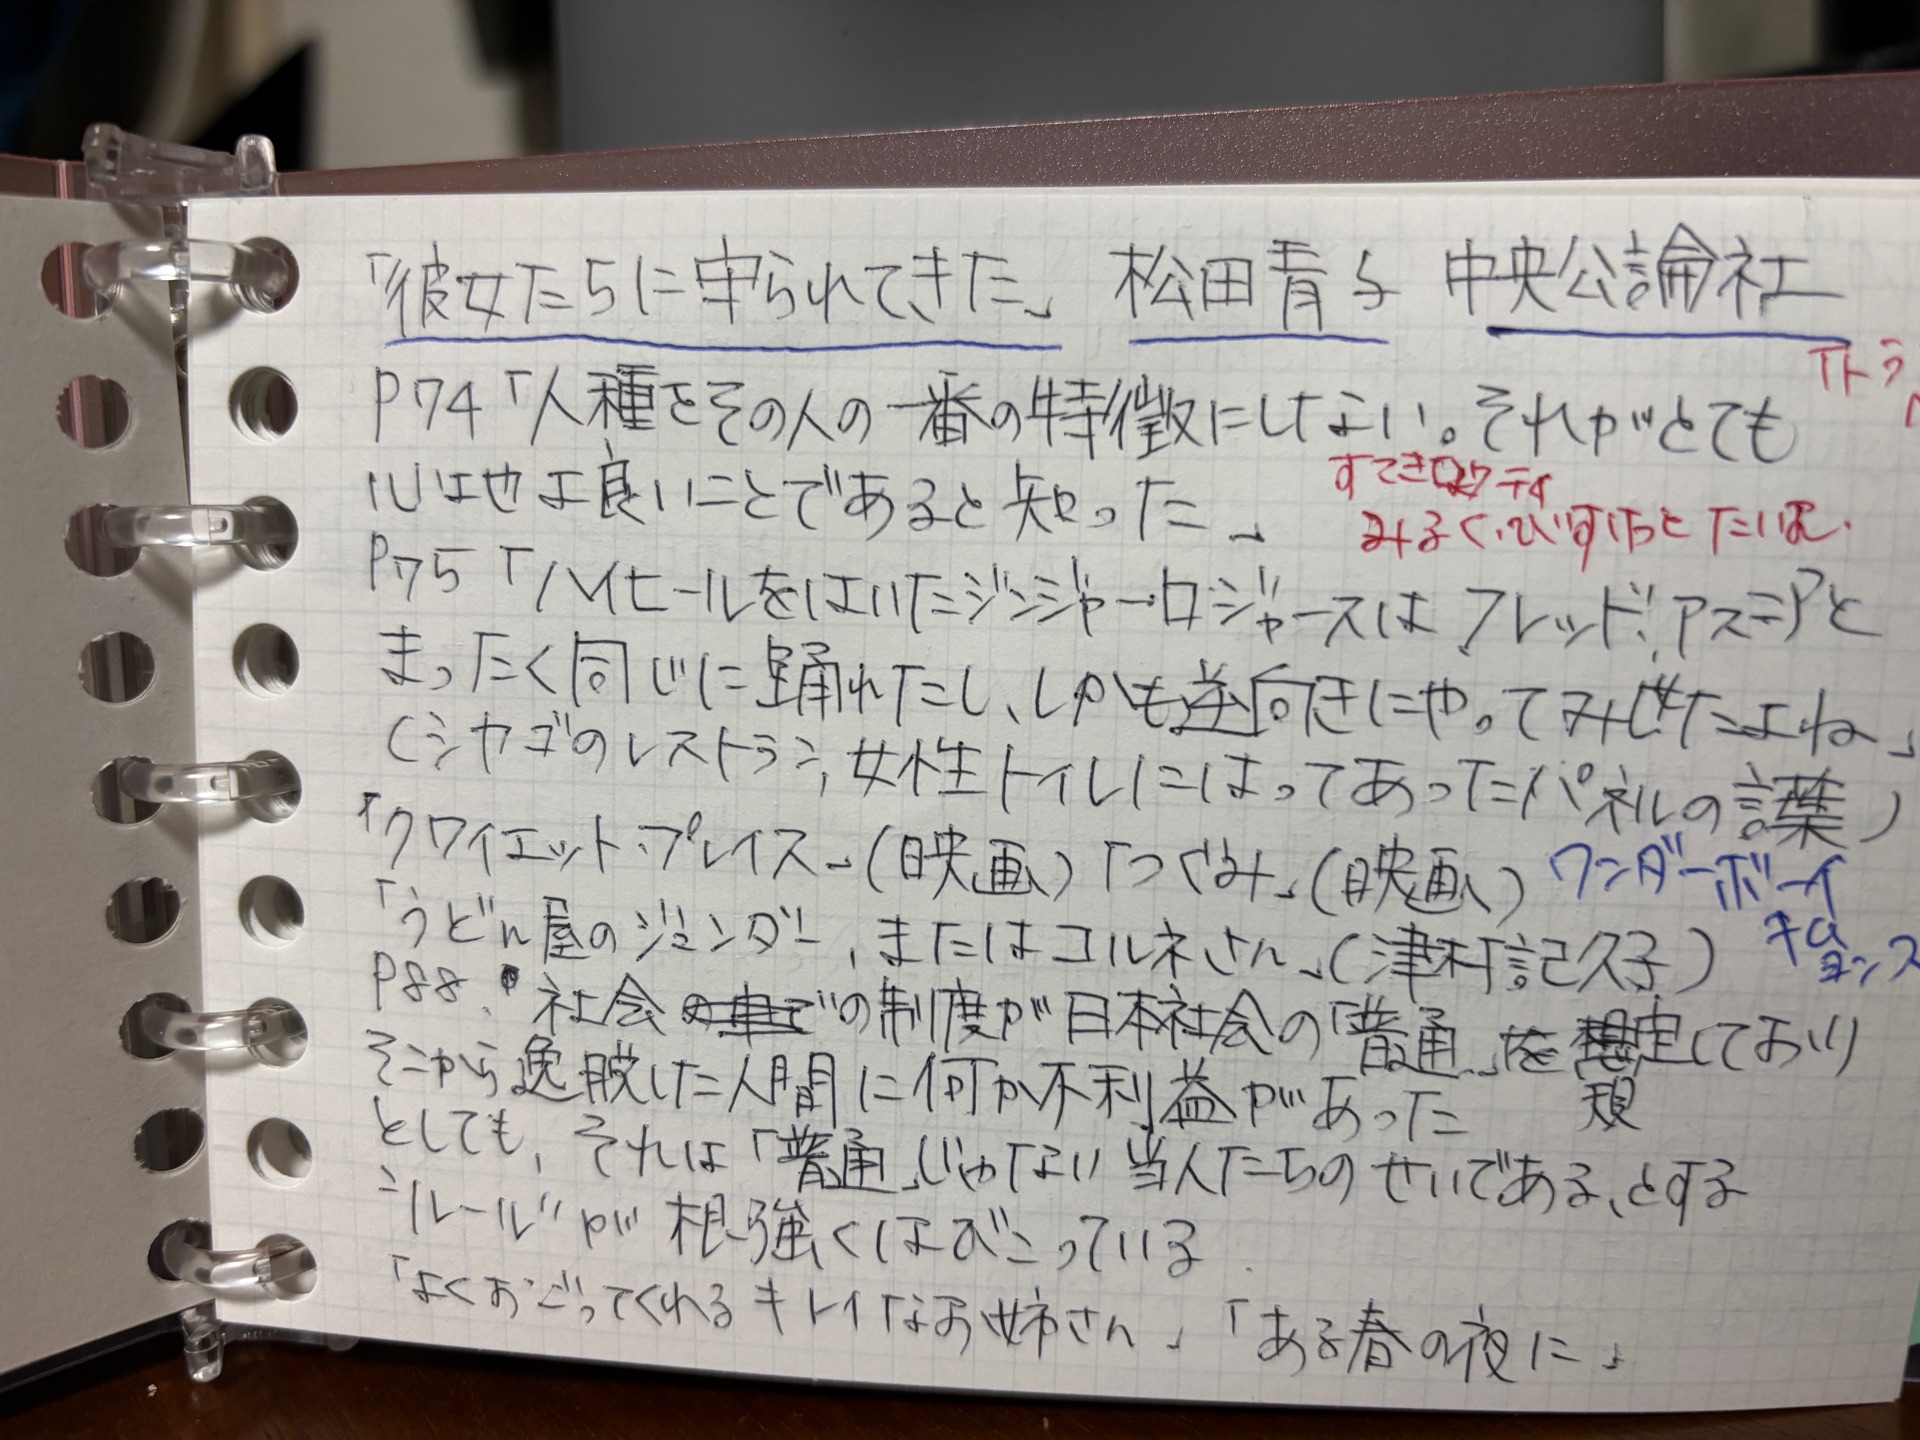 「彼女たちに守られてきた」 松田青子 中央公論社
P74「人種をその人の一番の特徴にしない。それがとても
「トラ
心地よ良いことであると知った」
すてきな
みるく・びすけっと たいむ
P75「ハイヒールをはいたジンジャーロジャースはフレッド・アステアと
まったく同じに踊れたし、しかも逆向きにやってみせたよね」
(シカゴのレストラン、女性トイレにはってあったパネルの言葉)
「クワイエット・プレイス」(映画)「つぐみ」(映画) ワンダーボーイ
キム ヨンス
「うどん屋のジェンダー、またはコルネさん」(津村記久子)
P88. 社会の制度が日本社会の「普通」を想定しており
そこから逸脱した人間に何か不利益があった
としても、それは「普通」じゃない当人たちのせいである、とする
"ルール"が根強くはびこっている.
「よくおごってくれるキレイなお姉さん」「ある春の夜に」